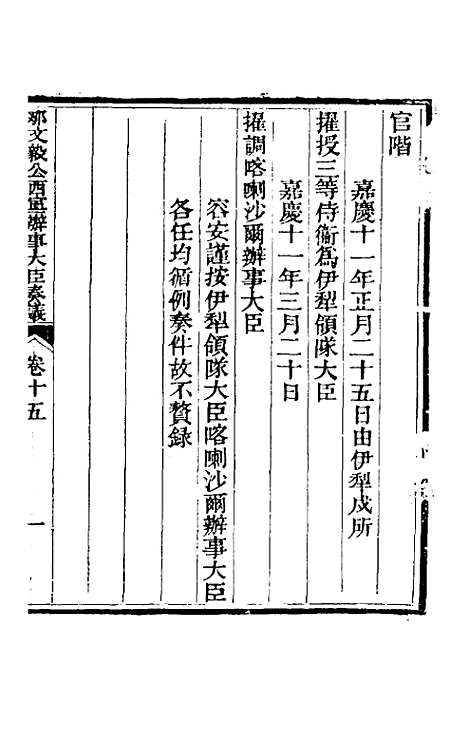 官階
嘉慶十一年正月二十五日由伊犁戍所
擢授三等侍衞爲伊犁領隊大臣
嘉慶十一年三月二十日
擢調喀喇沙爾辦事大臣
容安謹按伊犁領隊大臣喀喇沙爾辦事大臣
各任均循例奏件故不贅錄
那文毅公西寧辦事大臣奏議
卷十五
一